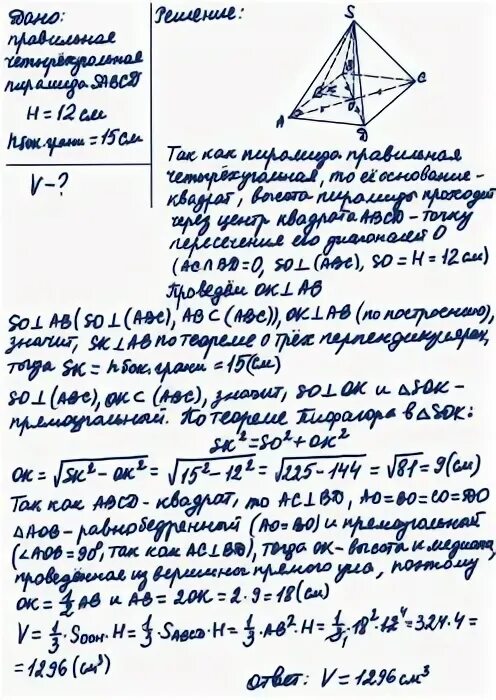 Дано:
правильная
четырёхугольная
пирамида SABCD
H = 12 см
hбок.грани = 15 см
V - ?
Решение:
S
B
C
K
O
A
D
Так как пирамида правильная
четырёхугольная, то её основание -
квадрат, высота пирамиды проходит
через центр квадрата ABCD - точку
пересечения его диагоналей O
(AC∩BD=O, SO⊥(ABC), SO = H = 12 см)
Проведём OK⊥AB
SO⊥AB (SO⊥(ABC), AB⊂(ABC)), OK⊥AB (по построению),
значит, SK⊥AB по теореме о трёх перпендикулярах,
тогда SK = hбок.грани = 15 (см)
SO⊥(ABC), OK⊂(ABC), значит, SO⊥OK и △SOK -
прямоугольный. По теореме Пифагора в △SOK:
SK² = SO² + OK²
OK = √SK² - OK² = √15² - 12² = √225 - 144 = √81 = 9 (см)
Так как ABCD - квадрат, то AC⊥BD, AO=BO=CO=DO
△AOB - равнобедренный (AO=BO) и прямоугольный
(∠AOB = 90°, так как AC⊥BD), тогда OK - высота и медиана,
проведённая из вершины прямого угла, поэтому
OK = 1/2 AB и AB = 2OK = 2·9 = 18 (см)
V = 1/3 · Sосн · H = 1/3 · SABCD · H = 1/3 · AB² · H = 1/3 · 18² · 12 = 324·4 =
= 1296 (см³)
Ответ: V = 1296 см³